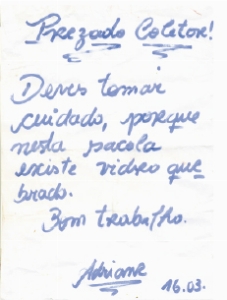 Prezado Coletor!
Deves tomar
cuidado, porque
nesta sacola
existe vidro que
brado.
Bom trabalho.
Adriane
16.03.